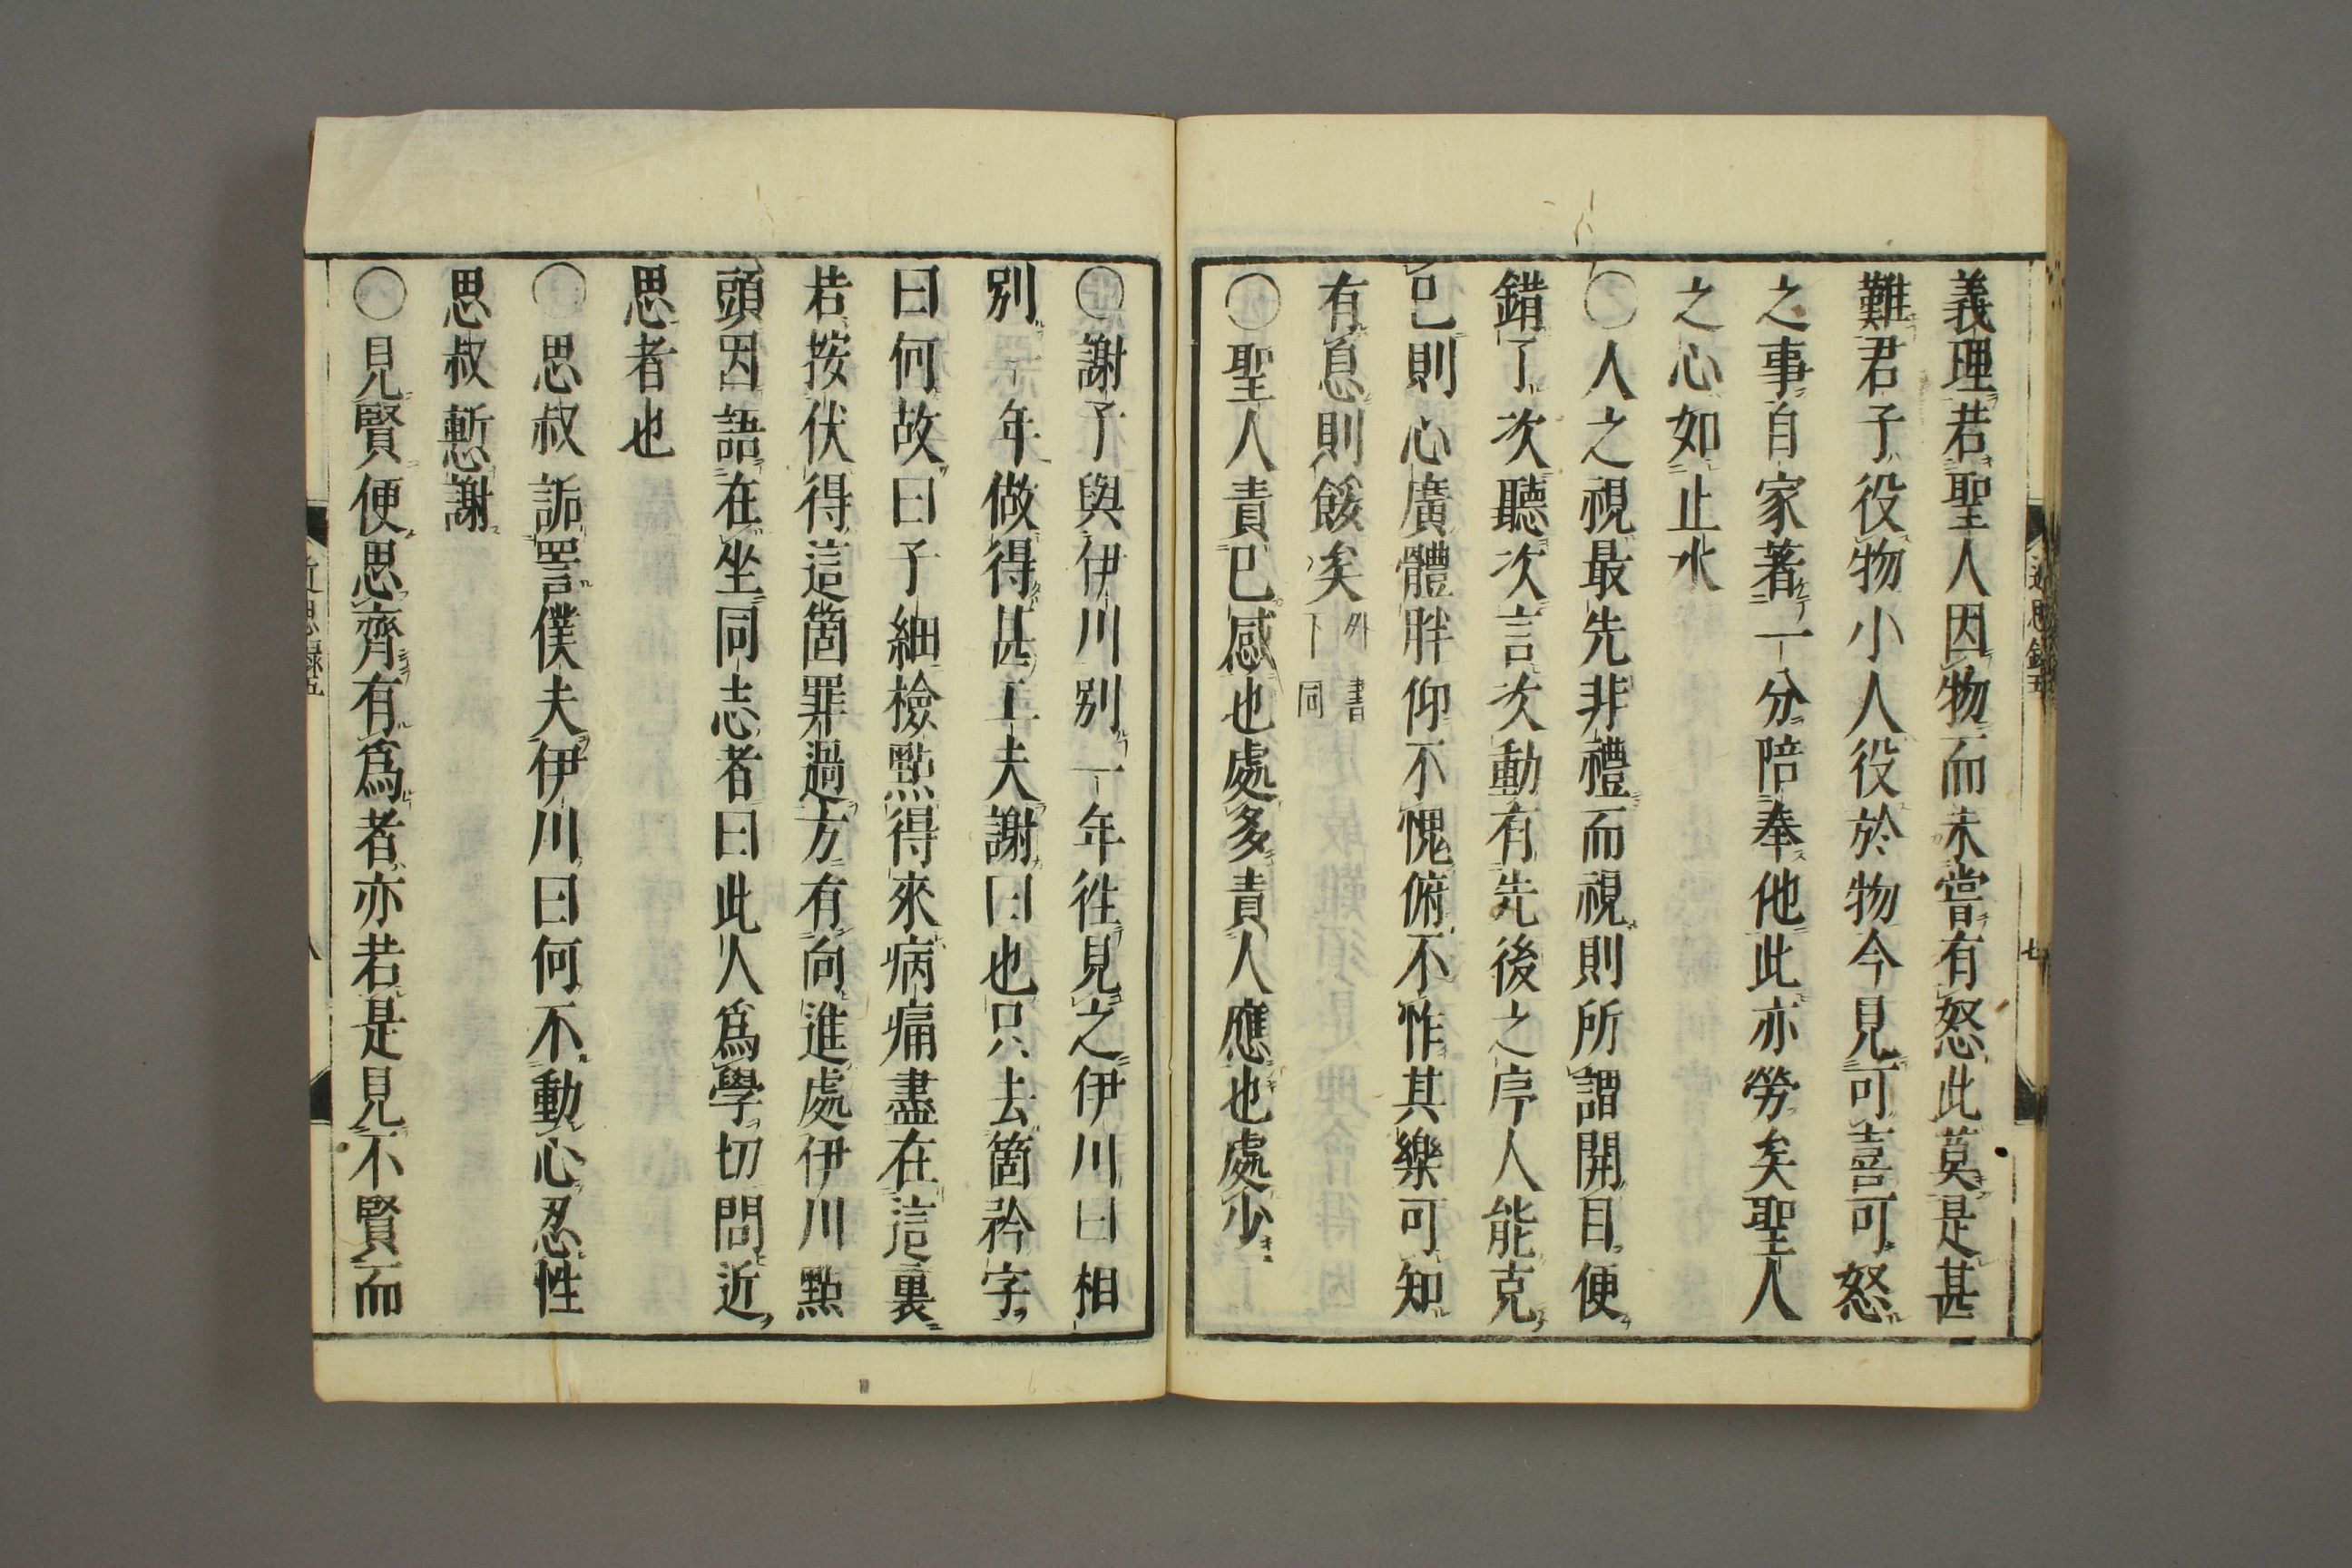 義理若聖人因物而未嘗有怒此莫是甚
難君子役物小人役於物今見可喜可怒
之事自家著一分陪奉他此亦勞矣聖人
之心如止水
〇人之視最先非禮而視則所謂開目便
錯了次聽次言次動有先後之序人能克
己則心廣體胖仰不愧俯不怍其樂可知
有息則餒矣外書下同
〇聖人責已感也處多責人應也處少
〇謝子與伊川別一年往見之伊川曰相
別一年做得甚工夫謝曰也只去箇矜字
曰何故曰子細檢點得來病痛盡在這裏
若按伏得這箇罪過方有向進處伊川點
頭因語在坐同志者曰此人爲學切問近
思者也
〇思叔詬詈僕夫伊川曰何不動心忍性
思叔慙謝
〇見賢便思齊有爲者亦若是見不賢而
近思錄五
七
近思錄五
八